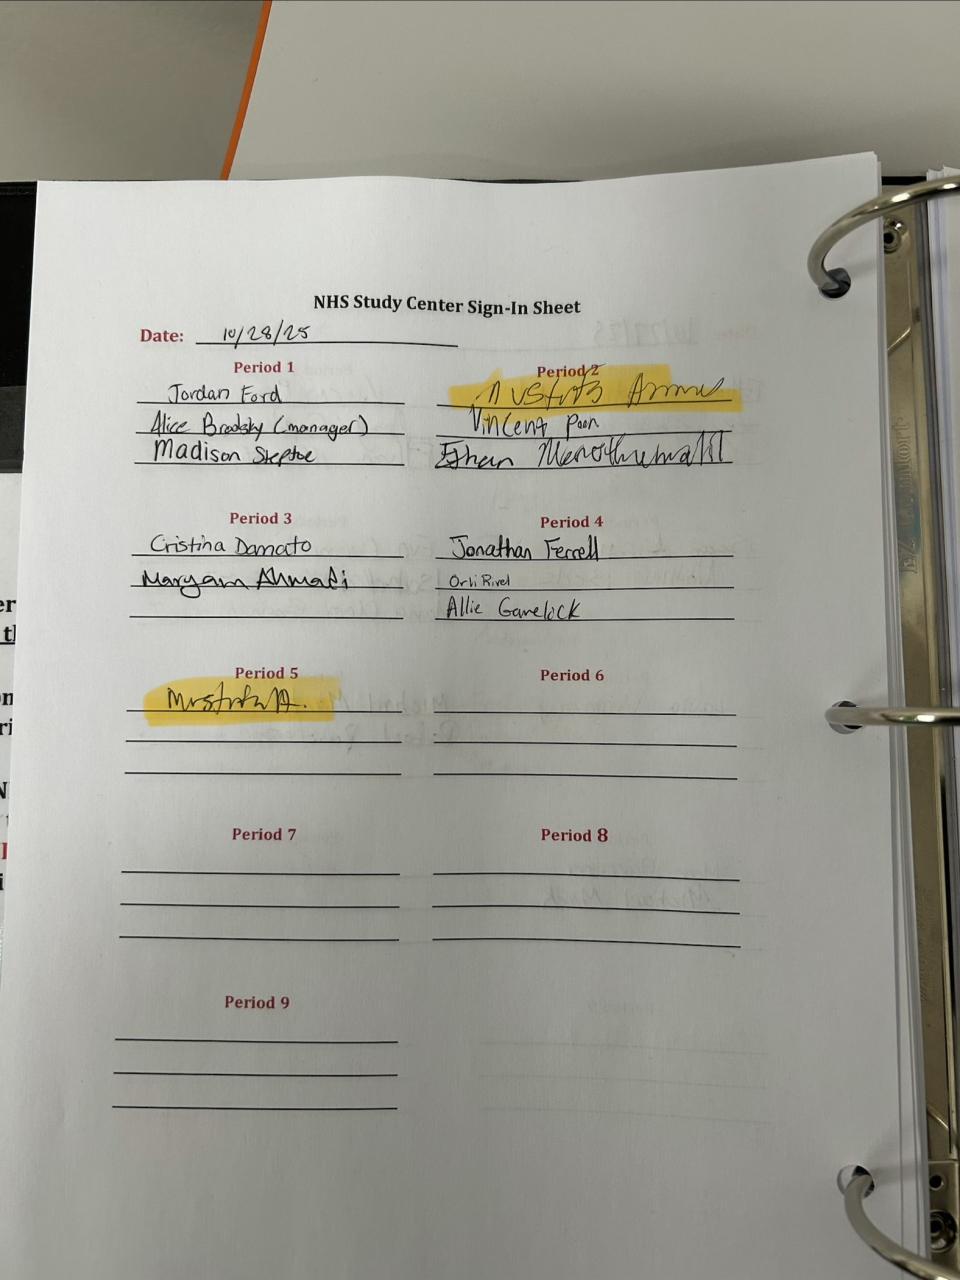 NHS Study Center Sign-In Sheet
Date: 10/28/25
Period 1
Jordan Ford
Alice Brodsky (manager)
Madison Steptoe
Period 2
Vincent Poon
Ethan
Period 3
Cristina Damato
Maryam Ahmadi
Period 4
Jonathan Ferrell
Orli Rivel
Allie Gavelick
Period 5
Period 6
Period 7
Period 8
Period 9